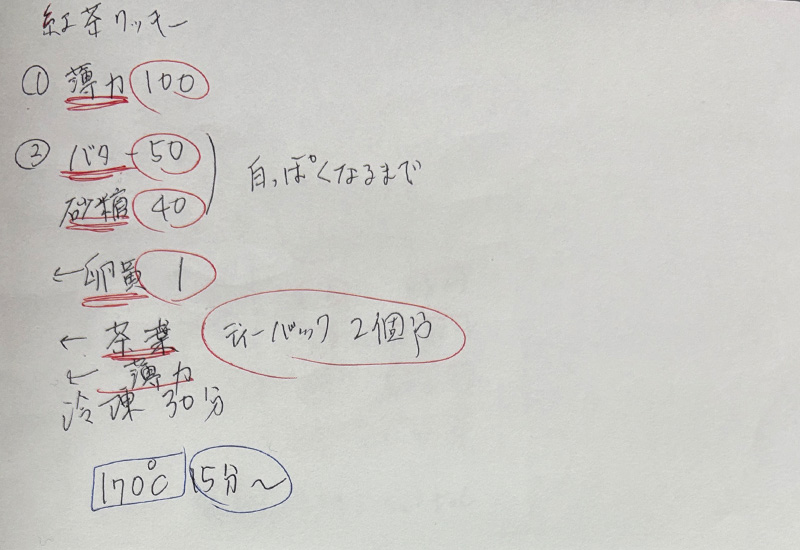 紅茶クッキー
① 薄力 100
② バター 50
砂糖 40
白っぽくなるまで
← 卵黄 1
← 茶葉 ティーバック 2個分
← 薄力
冷凍 30分
170℃ 15分〜